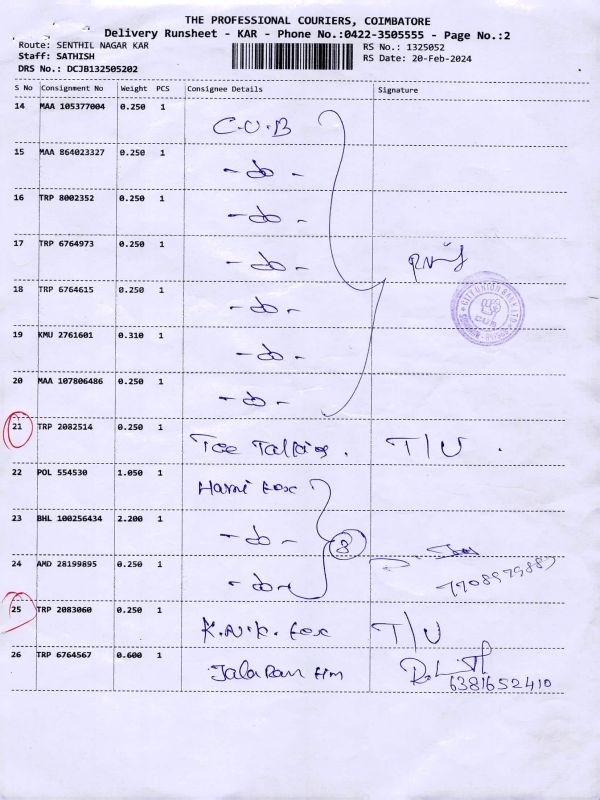 THE PROFESSIONAL COURIERS, COIMBATORE
Delivery Runsheet - KAR - Phone No.:0422-3505555 - Page No.:2
Route: SENTHIL NAGAR KAR RS No.: 1325052
Staff: SATHISH RS Date: 20-Feb-2024
DRS No.: DCJB132505202
S No Consignment No Weight PCS Consignee Details Signature
14 MAA 105377004 0.250 1 C.U.B
15 MAA 864023327 0.250 1 -do-
16 TRP 8002352 0.250 1 -do-
17 TRP 6764973 0.250 1 -do-
18 TRP 6764615 0.250 1 -do-
CITY UNION BANK LTD
CUB
19 KMU 2761601 0.310 1 -do-
20 MAA 107806486 0.250 1 -do-
21 TRP 2082514 0.250 1 Tee Talkies. T/U.
22 POL 554530 1.050 1 Hami tex
23 BHL 100256434 2.200 1 -do- 3
24 AMD 28199895 0.250 1 -do-
7708979887
25 TRP 2083060 0.250 1 K.N.K. tex T/U
26 TRP 6764567 0.600 1 Jalaram Hm
6381652410